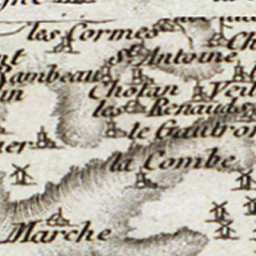 les Cormes
St Antoine
Rambeau
Chotan
les Renauds
le Gautron
la Combe
Marche